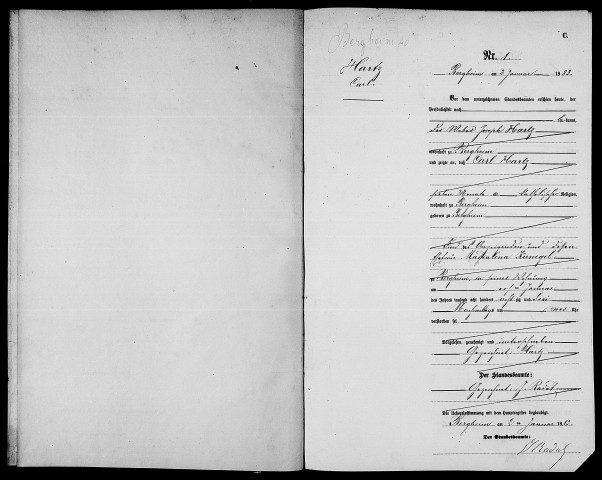 C.
Bergheim
Hartz
Carl.
Nr. 1.
Bergheim am 2 Januar 1883.
Vor dem unterzeichneten Standesbeamten erschien heute, der
Persönlichkeit nach
kannt,
Joseph Hartz
wohnhaft zu Bergheim
und zeigte an, daß Carl Hartz
Monate katholischer Religion,
wohnhaft zu Bergheim
geboren zu Bergheim
Kind des Anzeigenden und dessen
Ehefrau Magdalena
zu Bergheim, in seiner Wohnung
am Januar
des Jahres tausend acht hundert achtzig und drei
Nachmittags um Uhr
verstorben sei
Vorgelesen, genehmigt und unterschrieben
Gezeichnet: Hartz
Der Standesbeamte:
Gezeichnet: J. Radat.
Die Uebereinstimmung mit dem Hauptregister beglaubigt.
Bergheim am 2 Januar 1883.
Der Standesbeamte: